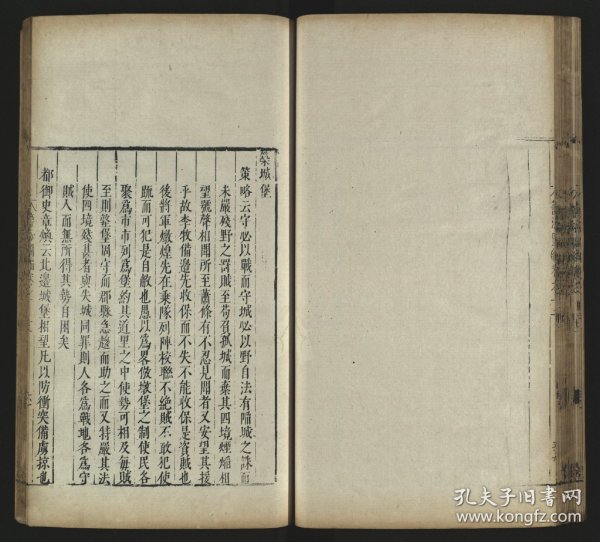 築城堡
策略云守必以戰而守城必以野自法有陷城之誅而
未嚴殘野之罰賊至苟若孤城而棄其四境煙𤇆相
望號聲相聞所至蕭條有不忍見聞者又安望其援
乎故李牧備邊先收保而不失不能收保是資賊也
後將軍燉煌先在乘隊列陣校聯不絕賊不敢犯使
既而可犯是自敵也愚以爲畧倣墩堡之制使民各
聚爲市市列爲堡約其道里之中使勢可相及每賊
至則擊堡固守而郡縣急趨而助之而又特嚴其法
使四境殘甚者與失城同罪則人各爲戰地各爲守
賊人而無所得其勢自困矣
都御史章煥云北邊城堡相望凡以防衝突備虜掠也
孔夫子旧书网
www.kongfz.com